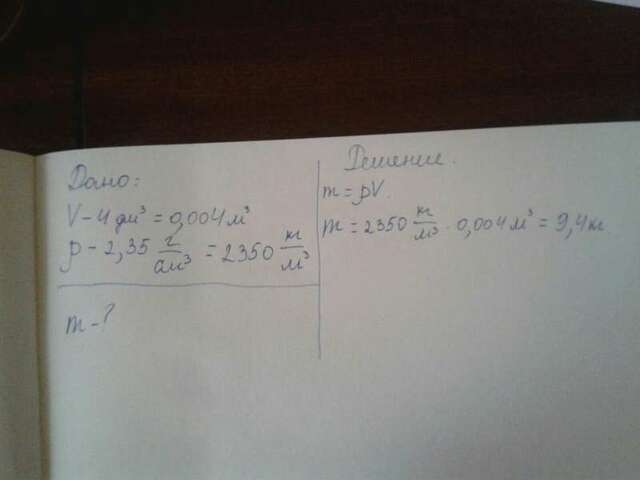 Дано:
V - 4 дм³ = 0,004 м³
ρ - 2,35 г/см³ = 2350 кг/м³
m - ?
Решение.
m = ρV.
m = 2350 кг/м³ · 0,004 м³ = 9,4 кг